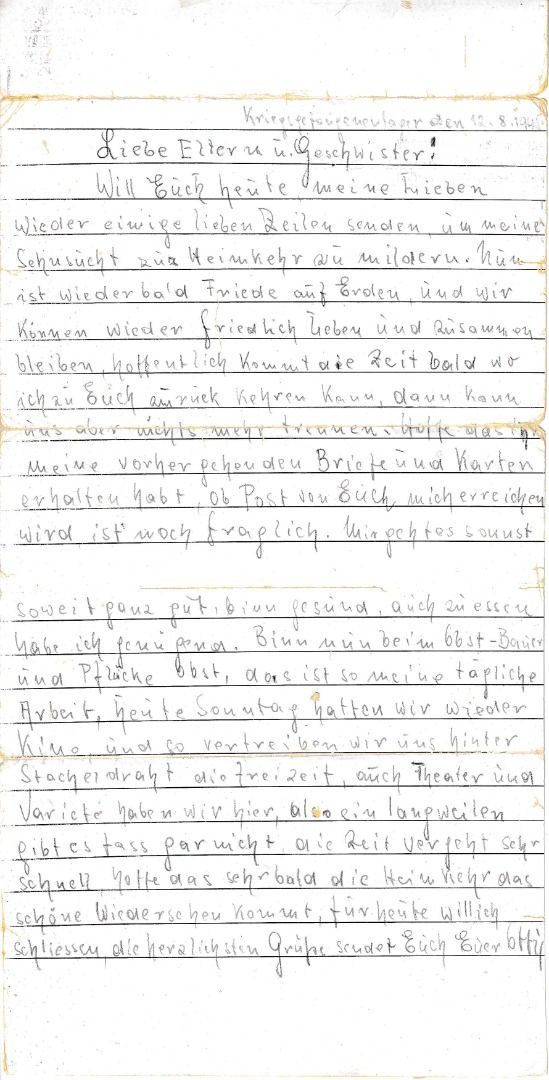 Kriegsgefangenenlager den 12.8.194
Liebe Eltern u. Geschwister!
Will Euch heute, meine Lieben
wieder einige lieben Zeilen senden, um meine
Sehnsucht zur Heimkehr zu mildern. Nun
ist wieder bald Friede auf Erden, und wir
können wieder friedlich Leben und zusammen
bleiben, hoffentlich kommt die Zeit bald wo
ich zu Euch zurück kehren kann, dann kann
uns aber nichts mehr trennen. Hoffe das ihr
meine vorhergehenden Briefe und Karten
erhalten habt, ob Post von Euch mich erreichen
wird ist noch fraglich. Mir geht es sonnst
soweit ganz gut, binn gesund, auch zu essen
habe ich genügend. Binn nun beim Obst-Bauer
und Pflücke Obst, das ist so meine tägliche
Arbeit, heute Sonntag hatten wir wieder
Kino, und so vertreiben wir uns hinter
Stacheldraht die Freizeit, auch Theater und
Varieté haben wir hier, also ein langweilen
gibt es fass gar nicht, die Zeit vergeht sehr
schnell, hoffe das sehr bald die Heimkehr das
schöne Wiedersehen kommt, für heute will ich
schliessen, die herzlichsten Grüße sendet Euch Euer